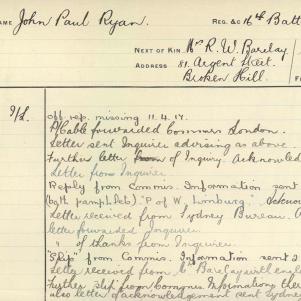 NAME John Paul Ryan. REG. No 16th Batt
NEXT OF KIN Mr R. W. Barclay
ADDRESS 81. Argent Street.
Broken Hill.
Off. rep. missing 11.4.17.
Cable forwarded Commrs London.
Letter sent Inquirer advising as above
Further letter from of Inquiry. Acknowled
Letter from Inquirer
Reply from Commis. Information sent
(with pamphlet). "P of W, Limburg."
Letter received from Sydney Bureau. A
letter forwarded Inquirer.
" of thanks from Inquirer.
"Slip" from Commis. Information sent
Letter received from Barclay
Further slip from Commrs Information
also letter of acknowledgement sent Sydney